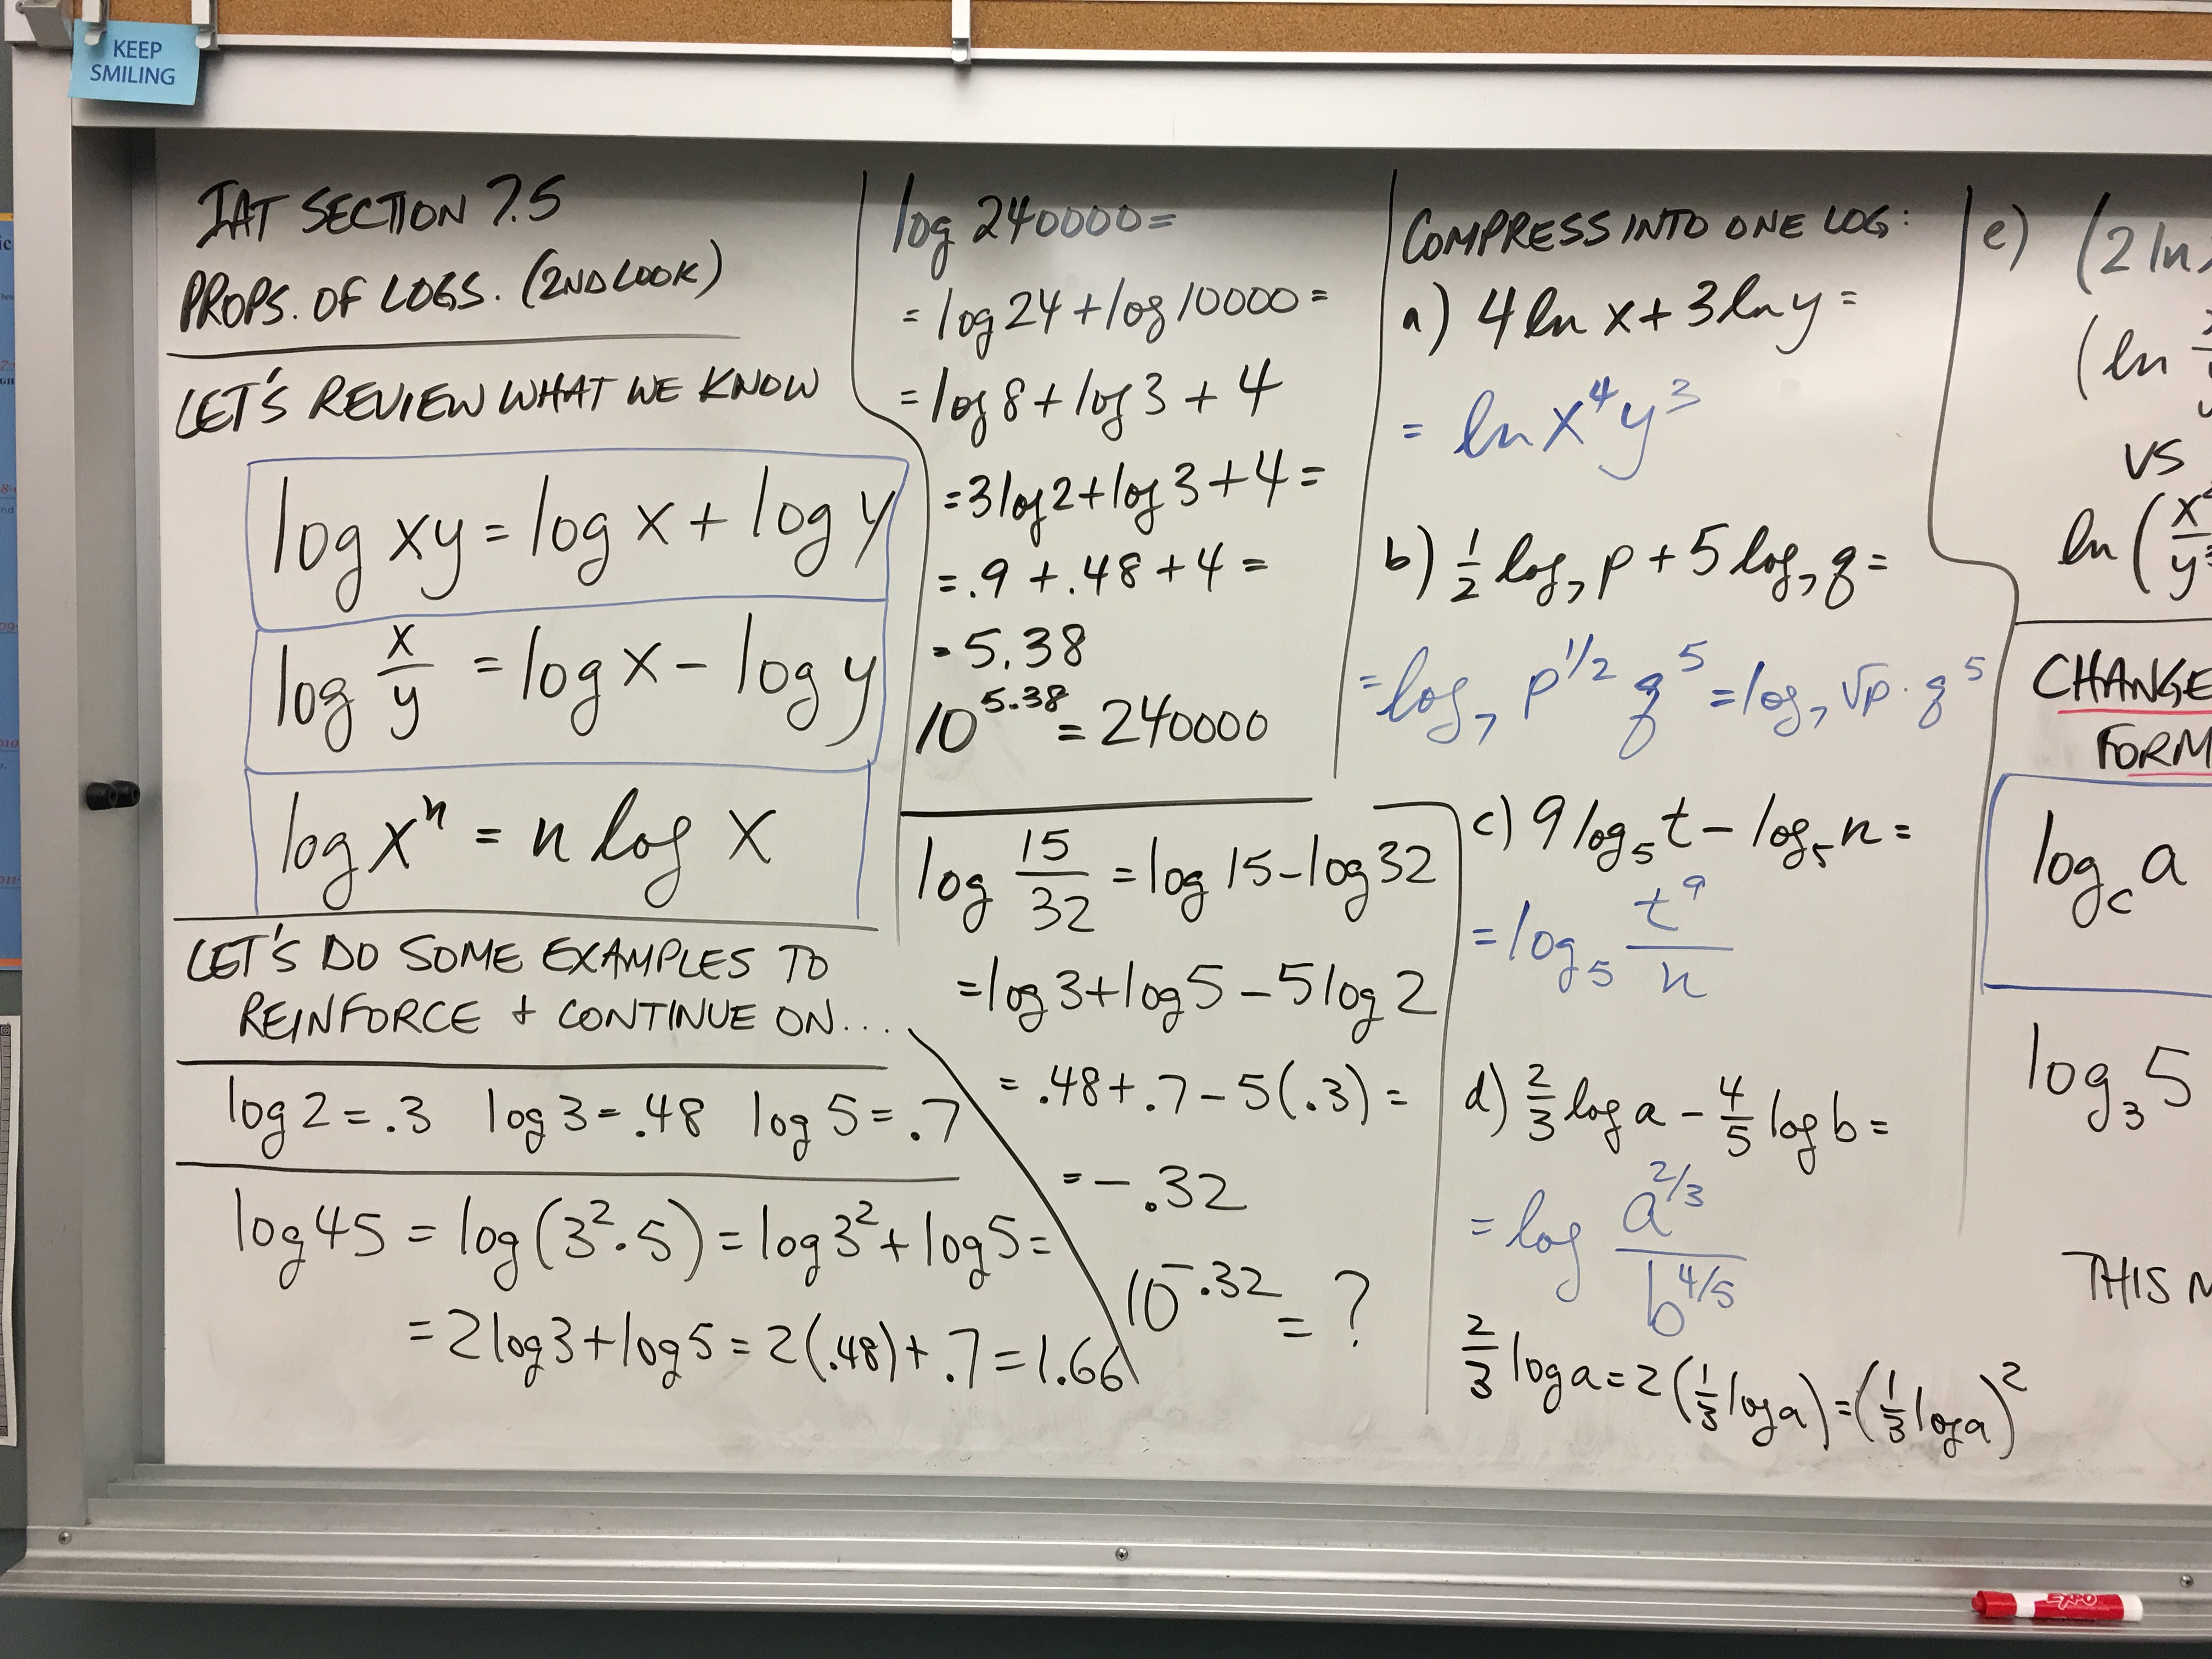 KEEP
SMILING
IAT SECTION 7.5
PROPS. OF LOGS. (2ND LOOK)
LET'S REVIEW WHAT WE KNOW
log xy = log x + log y
log x/y = log x - log y
log xⁿ = n log x
LET'S DO SOME EXAMPLES TO
REINFORCE + CONTINUE ON...
log 2 = .3 log 3 = .48 log 5 = .7
log 45 = log(3²·5) = log 3² + log 5 =
= 2 log 3 + log 5 = 2(.48) + .7 = 1.66
log 240000 =
= log 24 + log 10000 =
= log 8 + log 3 + 4
= 3 log 2 + log 3 + 4 =
= .9 + .48 + 4 =
= 5.38
10^5.38 = 240000
log 15/32 = log 15 - log 32
= log 3 + log 5 - 5 log 2
= .48 + .7 - 5(.3) =
= -.32
10^-.32 = ?
COMPRESS INTO ONE LOG:
a) 4 ln x + 3 ln y =
= ln x⁴y³
b) 1/2 log₇ p + 5 log₇ q =
= log₇ p^1/2 q⁵ = log₇ √p · q⁵
c) 9 log₅ t - log₅ n =
= log₅ t⁹/n
d) 2/3 log a - 4/5 log b =
= log a^2/3 / b^4/5
2/3 log a = 2(1/3 log a) = (1/3 log a)²
e) (2 ln
(ln
VS
ln (x²/y³
CHANGE
FORM
log_c a
log₃ 5
THIS
EXPO